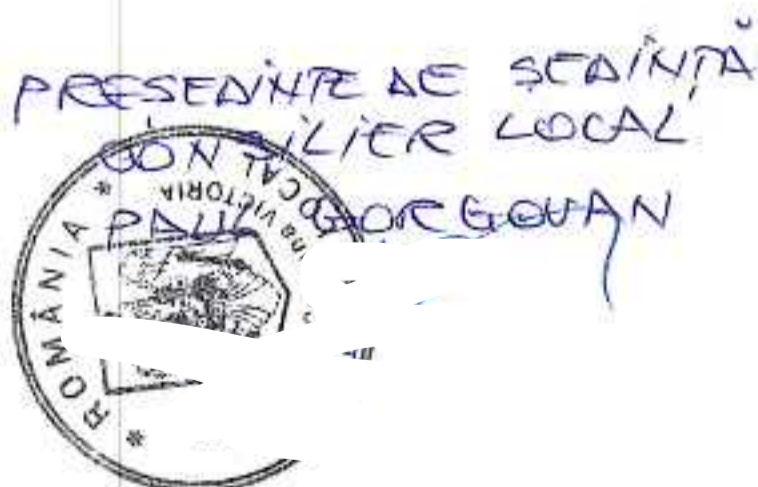 PREȘEDINTE DE ȘEDINȚĂ
CONSILIER LOCAL
PAUL GORGOVAN
* ROMÂNIA *
LOCAL
VICTORIA